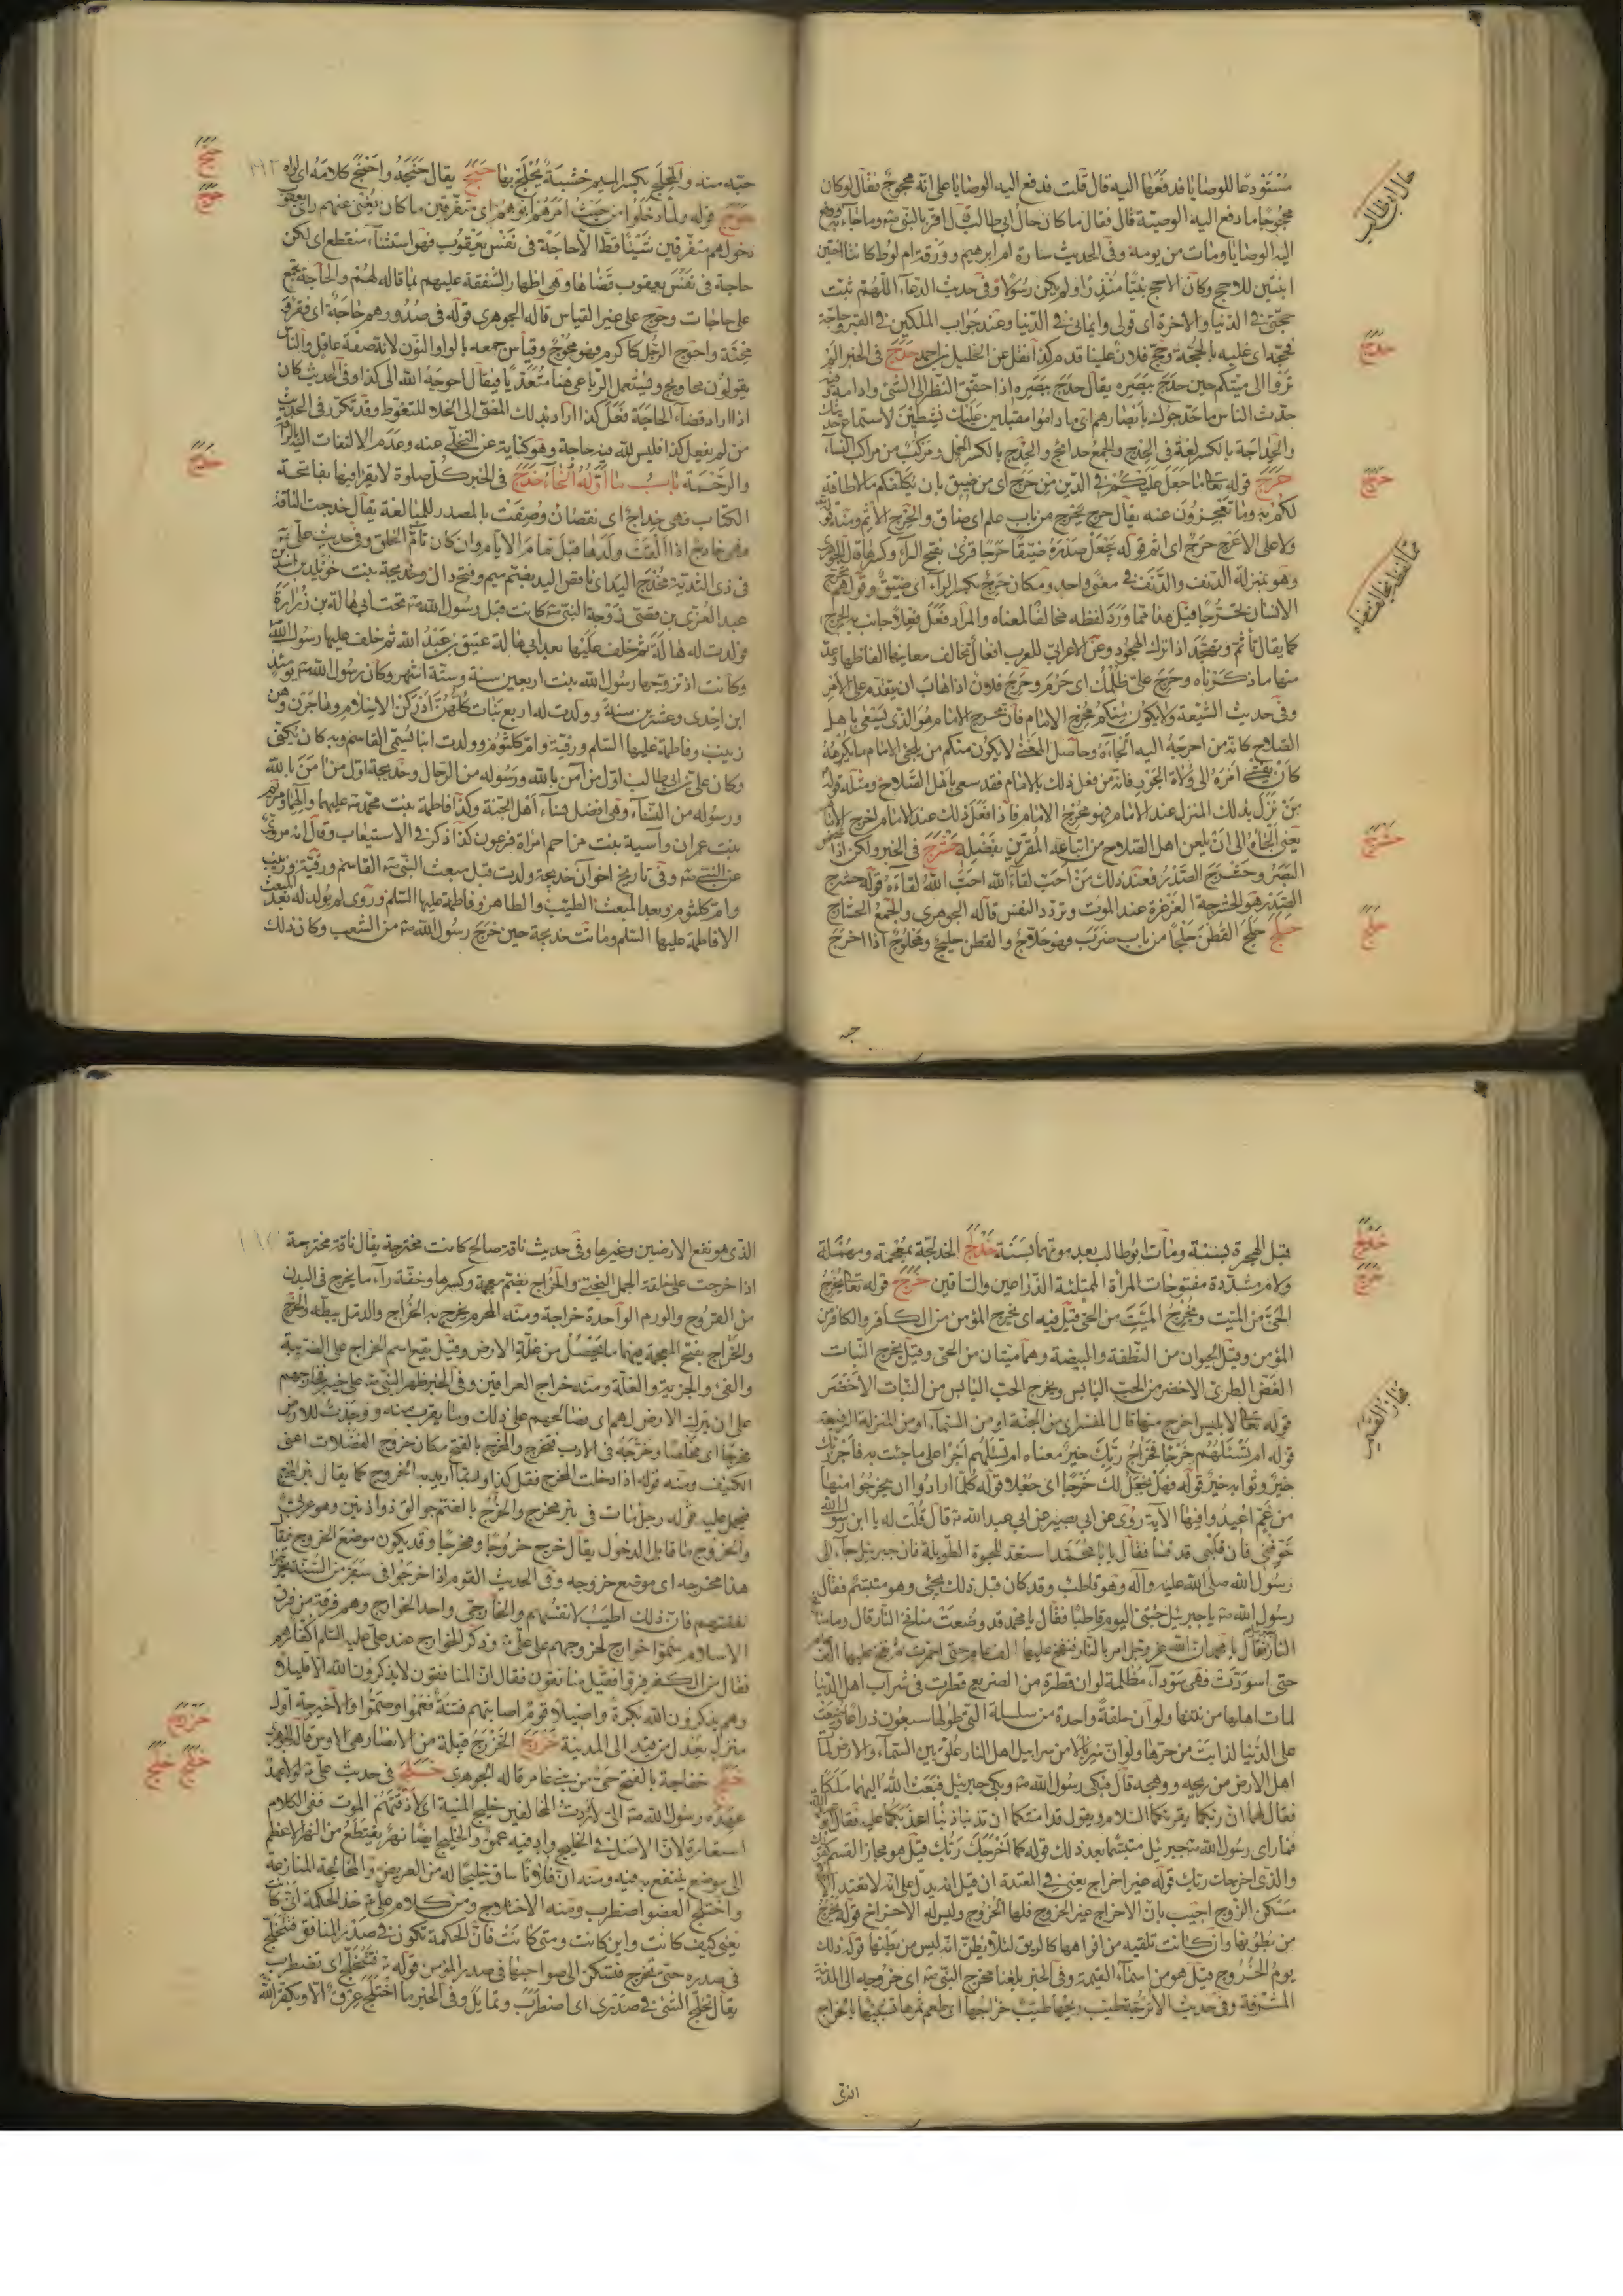 مستودعا للوصايا فدفعها اليه قال قلت فدفع اليه الوصايا على انه محجوج فقال لو كان
محجوجا ما دفع اليه الوصية قال فقال ما كان حال ابي طالب قال اقر بالنبي وبما جاء به ودفع
اليه الوصايا ومات من يومه وفي الحديث سارة ام ابرهيم وورقة ام لوط كانتا اختين
ابنتين للاحج وكان الاحج نبيا منذرا ولم يكن رسولا وفي حديث الدعاء اللهم ثبت
حجتي في الدنيا والاخرة اي قولي وايماني في الدنيا وعند جواب الملكين في القبر وحاجه
فحجه اي غلبه بالحجة وحج فلان علينا قدم كذا نقل عن الخليل بن احمد حدج في الخبر الم
تروا الى ميتكم حين حدج ببصره يقال حدج ببصره اذا حقق النظر الى الشئ وادامه
حدث الناس ما حدجوك بابصارهم اي ما داموا مقبلين عليك نشطين لاستماع حديثك
والحداجة بالكسر لغة في الحدج والجمع حدائج والحدج بالكسر الحمل ومركب من مراكب النساء
حرج قوله تعالى ما جعل عليكم في الدين من حرج اي من ضيق بان يكلفكم ما لا طاقة
لكم به وما تعجزون عنه يقال حرج يحرج من باب علم اي ضاق والحرج الاثم ومنه قوله
ولا على الاعرج حرج اي اثم قوله يجعل صدره ضيقا حرجا قرئ بفتح الراء وكسرها قال الجوهري
وهو بمنزلة الدنف والدنف في معنى واحد ومكان حرج بكسر الراء اي ضيق وقولهم تحرج
الانسان تحرجا قيل هذا مما ورد لفظه مخالفا لمعناه والمراد فعل فعلا جانب به الحرج
كما يقال تأثم وتهجد اذا ترك الهجود وعن الاعرابي للعرب افعال تخالف معانيها الفاظها وعد
منها ما ذكرناه وحرج على ظلمك اي حرم وحرج فلان اذا هاب ان يتقدم على الامر
وفي حديث الشيعة ولا يكون منكم محرج الامام فان محرج الامام هو الذي يسعى باهل
الصلاح كانه من احرجه اليه الجاءه وحاصل المعنى لا يكون منكم من يلجئ الامام ما يكرهه
كان يفشي امره الى ولاة الجور فانه من فعل ذلك بالامام فقد سعى باهل الصلاح ومثله قوله
من نزل بذلك المنزل عند الامام فهو محرج الامام فاذا فعل ذلك عند الامام احرج الامام
يعني الجأه الى ان يلعن اهل الصلاح من اتباعه المقرين بفضله حشرج في الخبر ولكن اذا شخص
البصر وحشرج الصدر فعند ذلك من احب لقاء الله احب الله لقاءه قوله حشرج
الصدر هو الحشرجة الغرغرة عند الموت وتردد النفس قاله الجوهري والجمع الحشارج
حلج حلج القطن حلجا من باب ضرب وهو حلاج والقطن حليج ومحلوج اذا اخرج
حال ابو طالب
حدج
حرج
حشرج
حلج
حبه منه والمحلج بكسر الميم خشبة يحلج بها حنج يقال حنجه واحنج كلامه اي لواه
حوج قوله ولما دخلوا من حيث امرهم ابوهم اي متفرقين ما كان يغني عنهم راي يعقوب
دخولهم متفرقين شيئا قط الا حاجة في نفس يعقوب فهو استثناء منقطع اي لكن
حاجة في نفس يعقوب قضاها وهي اظهار الشفقة عليهم بما قاله لهم والحاجة تجمع
على حاجات وحوج على غير القياس قاله الجوهري قوله في صدورهم حاجة اي فقر
واحوج الرجل كاكرم فهو محوج وقياس جمعه بالواو والنون لانه صفة عاقل والناس
يقولون محاويج ويستعمل الرباعي هنا متعديا فيقال احوجه الله الى كذا وفي الحديث كان
اذا اراد قضاء الحاجة فعل كذا اراد بذلك المضي الى الخلاء للتغوط وقد تكرر في الحديث
من لم يفعل كذا فليس لله فيه حاجة وهو كناية عن التخلي عنه وعدم الالتفات اليه بالرأفة
والرحمة باب ما اوله الخاء خدج في الخبر كل صلوة لا يقرا فيها بفاتحة
الكتاب فهي خداج اي نقصان وصفت بالمصدر للمبالغة يقال خدجت الناقة
فهي خادج اذا القت ولدها قبل تمام الايام وان كان تام الخلق وفي حديث علي
في ذي الثدية مخدج اليد اي ناقص اليد بضم ميم وفتح دال وخديجة بنت خويلد بن اسد
عبد العزى بن قصي زوجة النبي كانت قبل رسول الله تحت ابي هالة بن زرارة
فولدت له هالة ثم خلف عليها بعد ابي هالة عتيق بن عبد الله ثم خلف عليها رسول الله
وكانت اذ تزوجها رسول الله بنت اربعين سنة وستة اشهر وكان رسول الله يومئذ
ابن احدى وعشرين سنة وولدت له اربع بنات كلهن ادركن الاسلام وهاجرن وهن
زينب وفاطمة عليها السلم ورقية وام كلثوم وولدت ابنا يسمى القاسم وبه كان يكنى
وكان علي بن ابي طالب اول من آمن بالله ورسوله من الرجال وخديجة اول من آمن بالله
ورسوله من النساء وهي افضل نساء اهل الجنة وكذا فاطمة بنت محمد عليهما والهما ومريم
بنت عمران وآسية بنت مزاحم امراة فرعون كذا ذكر في الاستيعاب وقال انه مروي
عن النبي وفي تاريخ اخر ان خديجة ولدت قبل مبعث النبي القاسم ورقية وزينب
وام كلثوم وبعد المبعث الطيب والطاهر وفاطمة عليها السلم وروى لم يولد له بعد المبعث
الا فاطمة عليها السلم وماتت خديجة حين خرج رسول الله من الشعب وكان ذلك
حنج
حوج
خدج
قبل الهجرة بسنة ومات ابو طالب بعد موتها بسنة خدلج الخدلجة بمعجمة ومهملة
ولام مشددة مفتوحات المراة الممتلئة الذراعين والساقين خرج قوله تعالى يخرج
الحي من الميت ويخرج الميت من الحي قيل فيه اي يخرج المؤمن من الكافر والكافر من
المؤمن وقيل الحيوان من النطفة والبيضة وهما ميتان من الحي وقيل يخرج النبات
الغض الطري الاخضر من الحب اليابس ويخرج الحب اليابس من النبات الاخضر
قوله تعالى لابليس اخرج منها قال المفسر اي من الجنة او من السماء او من المنزلة الرفيعة
قوله ام تسئلهم خرجا فخراج ربك خير معناه ام تسئلهم اجرا على ما جئت به فاجر ربك
خير وثوابه خير قوله فهل نجعل لك خرجا اي جعلا قوله كلما ارادوا ان يخرجوا منها
من غم اعيدوا فيها الآية روى عن ابي بصير عن ابي عبد الله قال قلت له يا ابن رسول الله
خوفني فان قلبي قد قسا فقال يا با محمد استعد للحيوة الطويلة فان جبرئيل جاء الى
رسول الله صلى الله عليه وآله وهو قاطب وقد كان قبل ذلك يجئ وهو متبسم فقال
رسول الله يا جبرئيل جئتني اليوم قاطبا فقال يا محمد قد وضعت منافخ النار قال وما منافخ
النار فقال يا محمد ان الله عز وجل امر بالنار فنفخ عليها الف عام حتى احمرت ثم نفخ عليها الف
حتى اسودت فهي سوداء مظلمة لو ان قطرة من الضريع قطرت في شراب اهل الدنيا
لمات اهلها من نتنها ولو ان حلقة واحدة من سلسلة التي طولها سبعون ذراعا وضعت
على الدنيا لذابت من حرها ولو ان سربالا من سرابيل اهل النار علق بين السماء والارض لمات
اهل الارض من ريحه ووهجه قال فبكى رسول الله وبكى جبرئيل فبعث الله اليهما ملكا
فقال لهما ان ربكما يقرئكما السلام ويقول قد امنتكما ان تذنبا ذنبا اعذبكما عليه فقال
فما راى رسول الله جبرئيل متبسما بعد ذلك قوله كما اخرجك ربك قيل هو مجاز القسم
والذي اخرجك ربك قوله غير اخراج يعني في المعتدة ان قيل انه يدل على انه لا تعتد
مسكن الزوج اجيب بان الاخراج غير الخروج فلها الخروج وليس له الاخراج قوله يخرج
من بطونها وان كانت تلقيه من افواهها كالريق لئلا يظن انه ليس من بطنها قوله ذلك
يوم الخروج قيل هو من اسماء القيمة وفي الخبر بلغنا مخرج النبي اي خروجه الى المدينة
المشرفة وفي حديث الاترجة طيب ريحها طيب خراجها اي طعم ثمرها تشبيها بالخراج
خدلج
خرج
مجاز القسم
الذي
الذي هو نفع الارضين وغيرها وفي حديث ناقة صالح كانت مخترجة يقال ناقة مخترجة
اذا خرجت على خلقة الجمل البختي والخراج بضم معجمة وكسرها وخفة راء ما يخرج في البدن
من القروح والورم الواحدة خراجة ومنه المحرم يخرج به الخراج والدمل يبطه والخرج
والخراج بفتح المعجمة فيهما ما يحصل من غلة الارض وقيل يقع اسم الخراج على الضريبة
والفئ والجزية والغلة ومنه خراج العراقين وفي الخبر ظهر النبي على خيبر فخارجهم
على ان يترك الارض لهم اي صالحهم على ذلك ومما يقرب منه ووجدت للارض
مخرجا اي مخلصا وخرجه في الادب فتخرج والمخرج بالفتح مكان خروج الفضلات اعني
الكنيف ومنه قوله اذا دخلت المخرج فقل كذا وربما اريد به الخروج كما يقال
فيحمل عليه قوله رجل بات في بئر مخرج والخرج بالضم جوالق ذو اذنين وهو عربي
والخروج ما قابل الدخول يقال خرج خروجا ومخرجا وقد يكون موضع الخروج يقال
هذا مخرجه اي موضع خروجه وفي الحديث القوم اذا خرجوا في سفر من السنة
نفقتهم فان ذلك اطيب لانفسهم والخارجي واحد الخوارج وهم فرقة من فرق
الاسلام سموا خوارج لخروجهم على علي وذكر الخوارج عند علي عليه السلم اكفار هم
فقال من الكفر فروا فقيل منافقون فقال ان المنافقون لا يذكرون الله الا قليلا
وهم يذكرون الله بكرة واصيلا قوم اصابتهم فتنة فعموا وصموا والاخيرجة اول
منزل يعدل من فيد الى المدينة خزرج الخزرج قبيلة من الانصار هي الاوس قاله الجوهري
خفج خفاجة بالفتح حي من بني عامر قاله الجوهري خلج في حديث علي لولا عهد
عهده رسول الله الي لاوردت المخالفين خليج المنية اي لاذقتهم الموت ففي الكلام
استعارة لان الاصل في الخليج واد فيه عمق والخليج ايضا نهر يقتطع من النهر الاعظم
الى موضع ينتفع به فيه ومنه ان فلانا ساق خليجا له من العريض والمخالجة المنازعة
واختلج العضو اضطرب ومنه الاختلاج ومن كلام علي خذ الحكمة انى كانت
يعني كيف كانت واين كانت ومتى كانت فان الحكمة تكون في صدر المنافق فتختلج
في صدره حتى تخرج فتسكن الى صواحبها في صدر المؤمن قوله فتختلج اي تضطرب
يقال تخلج الشئ في صدري اي اضطرب وتمايل وفي الخبر ما اختلج عرق الا ويكفر الله
خزرج
خفج خلج